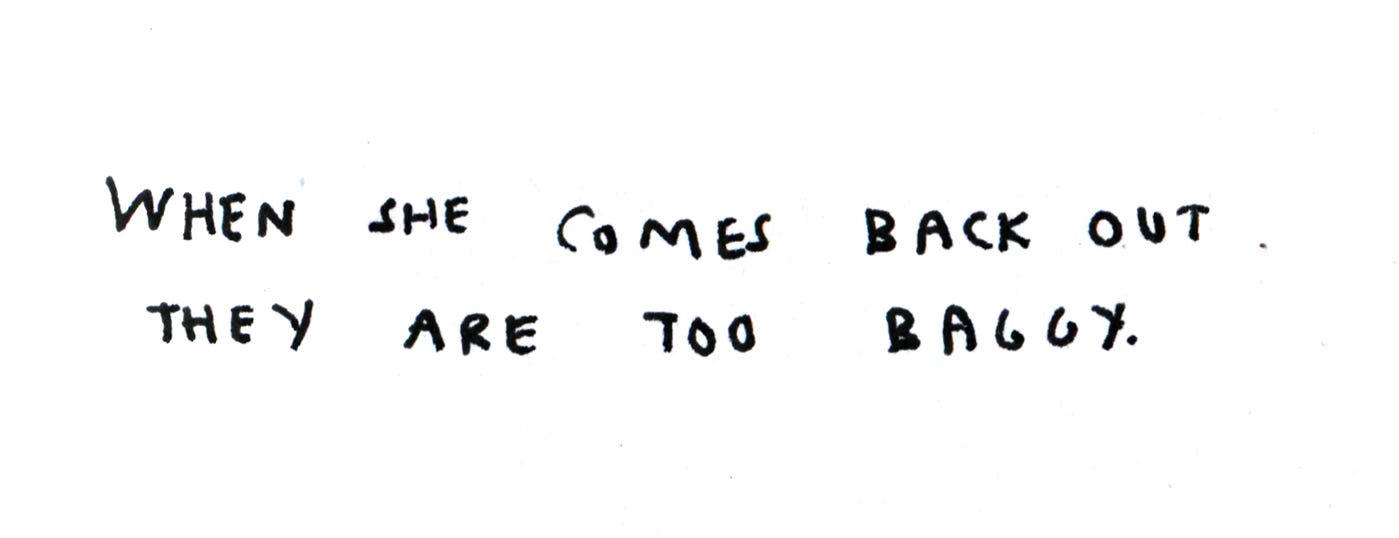 WHEN SHE COMES BACK OUT.
THEY ARE TOO BAGGY.